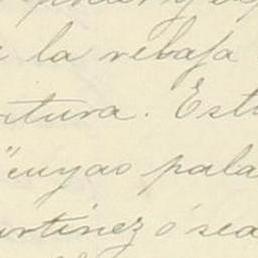 e la rebaja
itura. Est
"cuyas pala
artinez ó sea